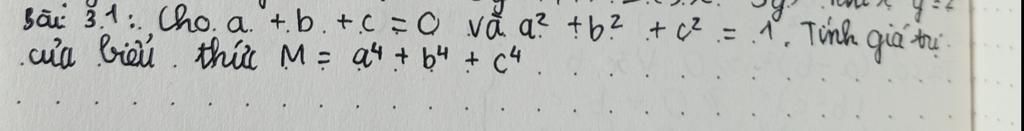 Bài 3.1: Cho a + b + c = 0 và a² + b² + c² = 1. Tính giá trị
của biểu thức M = a⁴ + b⁴ + c⁴